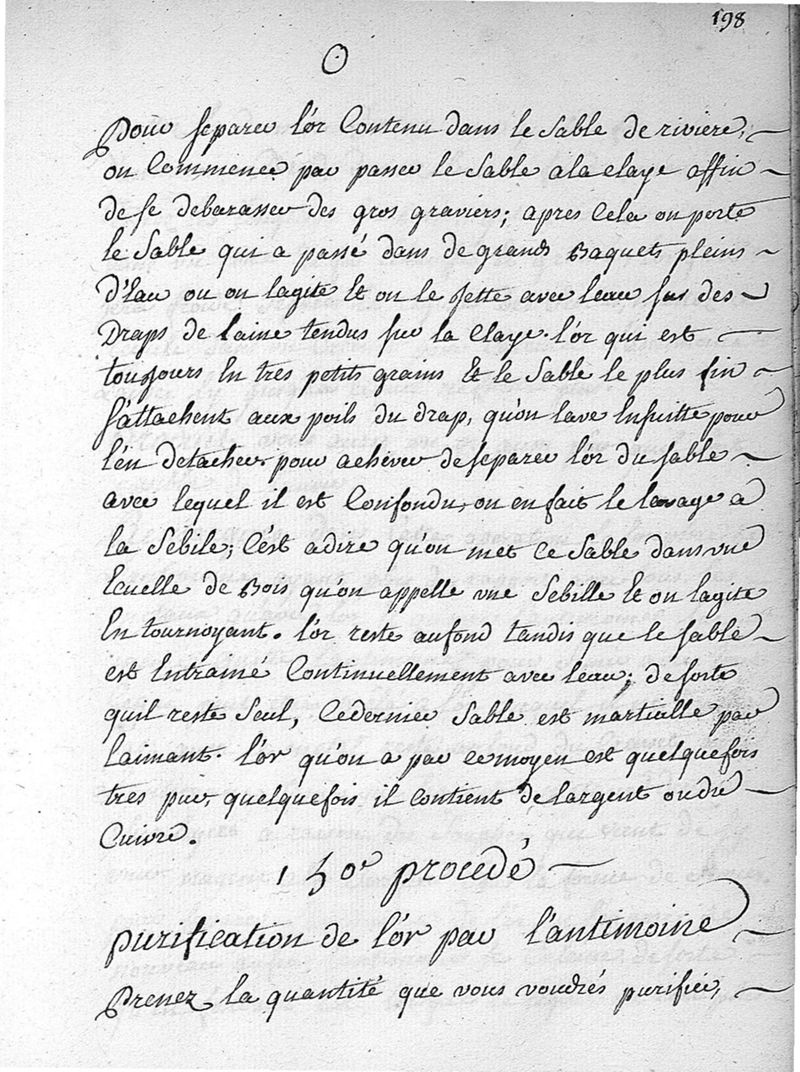 198
Pour separer l'or Contenu dans le sable de riviere,
on Commence par passer le sable a la claye affin
de se debarasser des gros graviers; apres Cela on porte
le sable qui a passé dans de grands Baquets pleins
d'Eau ou on lagite Et on le jette avec leau sur des
Draps de laine tendus sur la Claye. l'or qui est
toujours En tres petits grains Et le sable le plus fin
s'attachent aux poils du drap, qu'on lave Ensuitte pour
l'en detacher, pour achever de separer l'or du sable
avec lequel il est Confondu, on en fait le lavage a
la Sebile; C'est a dire qu'on met Ce sable dans une
Ecuelle de Bois qu'on appelle une Sebille Et on lagite
En tournoyant. l'or reste au fond tandis que le sable
est Entrainé Continuellement avec leau; de sorte
quil reste Seul, Ce dernier sable est martialle par
laimant. l'or qu'on a par ce moyen est quelquefois
tres pur, quelquefois il contient de largent ou du
Cuivre.
150e procedé
purification de l'or par l'antimoine
Prenez la quantité que vous voudrés purifier,